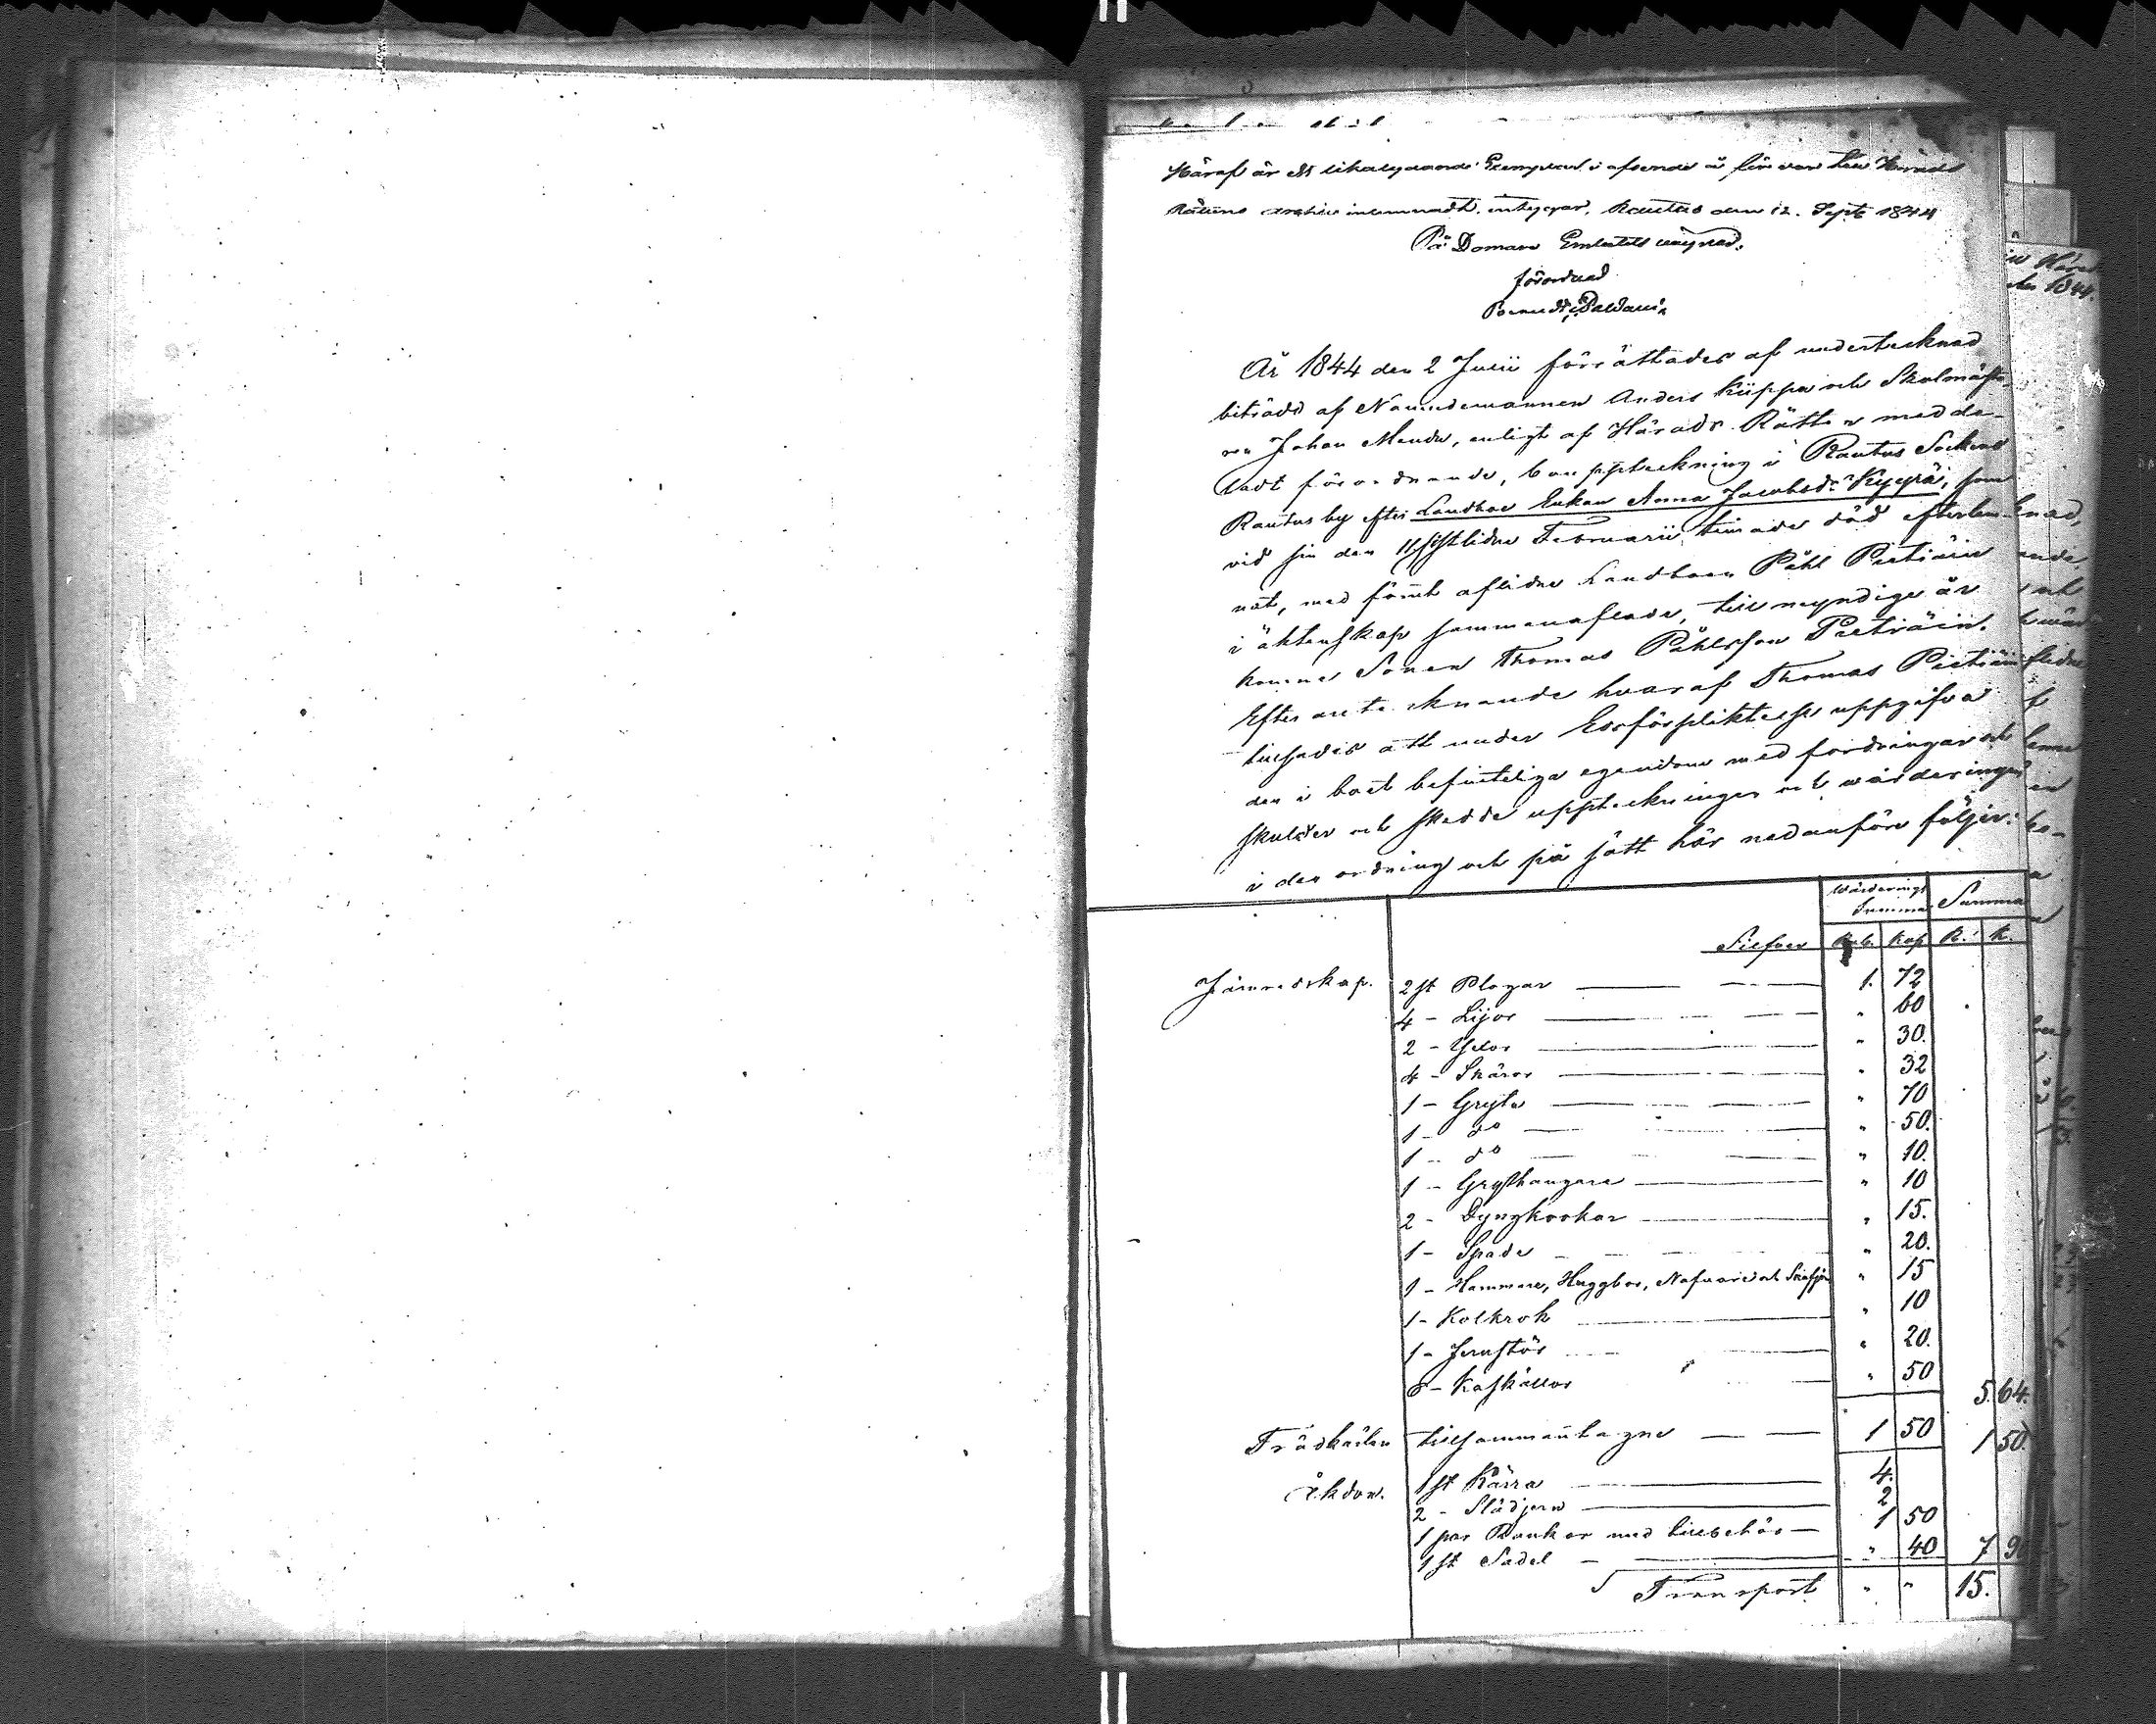 Häraf är ett likalydande Exemplar i afseende å förvar uti Härads
Rättens archiv inlemnadt, intygar, Rautus den 12. Sept 1844
På Domare Embetets vägnar,
förordnad
År 1844 den 2 Julii förrättades af undertecknad
biträdd af Nämndemannen Anders Kiippa och Skolmästa-
ren Johan Mendu, enligt af Härads Rätten medde-
ladt förordnande, bouppteckning i Rautus Sockens
Rautus by efter Landboe Enkan Anna Jacobsdr Kyyrä, som
vid sin den 11 sistlidne Februarii timade död efterlem-
nat, med förut aflidne Landboen Påhl Pietiäin
i äktenskap sammanaflade, till myndige år
komne Sonen Thomas Påhlsson Pietiäin.
Efter antecknande hvaraf Thomas Pietiäin
tillsades att under Edsförpliktelse uppgifva
den i boet befinteliga egendom med fordringar och
skulder och skedde uppteckningen och värderingen
i den ordning och på sätt här nedanföre följer:
Wärderings Summa Summa
Silfver Rub. Kop R. K.
Järnredskap. 2 st Plogar 1. 72
4 - Lijor " 60
2 - Yxor " 30.
4 - Skäror " 32
1 - Gryta " 70
1 - do " 50.
1 - do " 10.
1 - Grythangare " 10
2 - Dyngkrokar " 15.
1 - Spade " 20.
1 - Hammare, Huggbor, Nafvare och " 15
1 - Kolkrok " 10
1 - Jernstör " 20.
- Koskällor " 50 5. 64.
Trädkärlen tillsammantagne 1 50 1 50.
Åkdon. 1 st Kärra 4.
2 - Slädjern 2
1 par Bankor med tillbehör 1 50
1 st Sadel " 40 7 9
Transport " " 15.